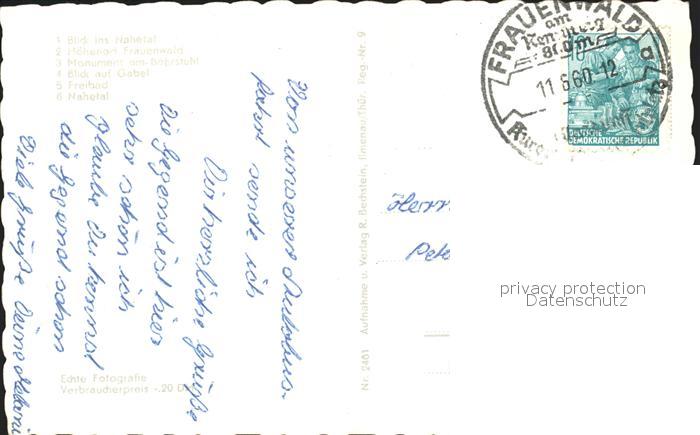 1 Blick ins Nahetal
2 Höhenort Frauenwald
3 Monument am Bohrstuhl
4 Blick auf Gabel
5 Freibad
6 Nahetal
Von unserer Autobus-
fahrt sende ich
Dir herzliche Grüße
Die Gegend ist hier
sehr schön ich
glaube Du kennst
die Gegend schon
Viele Grüße Deine
Echte Fotografie
Verbraucherpreis -.20
Nr. 2461 Aufnahme u. Verlag R. Bechstein, Ilmenau/Thür. Reg.-Nr. 9
FRAUENWALD
am
Rennsteig
11.6.60-12
a
10
DEUTSCHE
DEMOKRATISCHE REPUBLIK
Herrn
Pete
privacy protection
Datenschutz